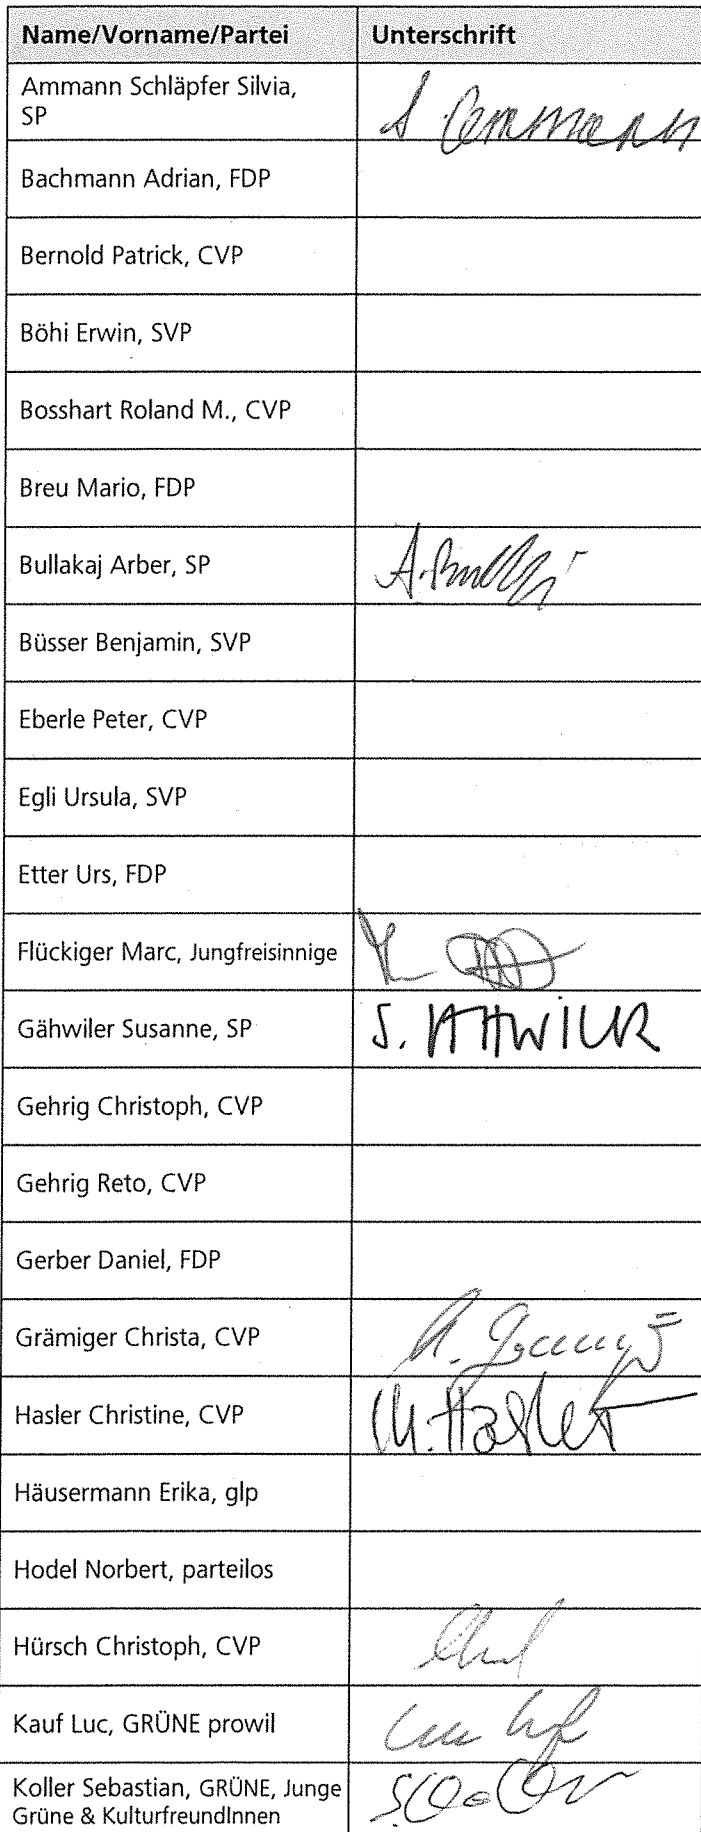 Name/Vorname/Partei Unterschrift
Ammann Schläpfer Silvia,
SP
S Ammann
Bachmann Adrian, FDP
Bernold Patrick, CVP
Böhi Erwin, SVP
Bosshart Roland M., CVP
Breu Mario, FDP
Bullakaj Arber, SP
Büsser Benjamin, SVP
Eberle Peter, CVP
Egli Ursula, SVP
Etter Urs, FDP
Flückiger Marc, Jungfreisinnige
Gähwiler Susanne, SP
Gehrig Christoph, CVP
Gehrig Reto, CVP
Gerber Daniel, FDP
Grämiger Christa, CVP
Hasler Christine, CVP
Häusermann Erika, glp
Hodel Norbert, parteilos
Hürsch Christoph, CVP
Kauf Luc, GRÜNE prowil
Koller Sebastian, GRÜNE, Junge
Grüne & KulturfreundInnen